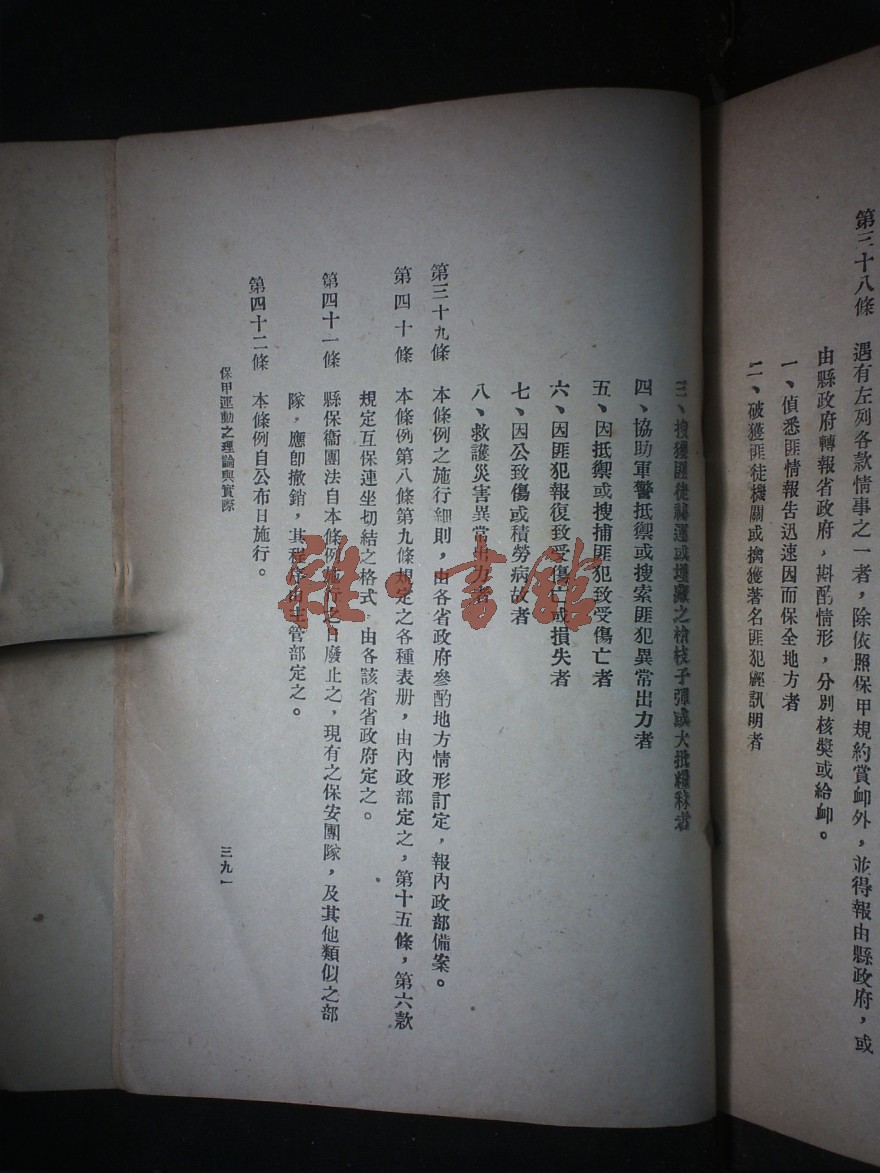 第三十八條　遇有左列各款情事之一者，除依照保甲規約賞卹外，並得報由縣政府，或
由縣政府轉報省政府，斟酌情形，分別核獎或給卹。
一、偵悉匪情報告迅速因而保全地方者
二、破獲匪徒機關或擒獲著名匪犯經訊明者
三、搜獲匪徒祕運或埋藏之槍枝子彈或大批糧秣者
四、協助軍警抵禦或搜索匪犯異常出力者
五、因抵禦或搜捕匪犯致受傷亡者
六、因匪犯報復致受傷亡或損失者
七、因公致傷或積勞病故者
八、救護災害異常出力者
第三十九條　本條例之施行細則，由各省政府參酌地方情形訂定，報內政部備案。
第四十條　本條例第八條第九條規定之各種表册，由內政部定之，第十五條，第六款
規定互保連坐切結之格式，由各該省省政府定之。
第四十一條　縣保衞團法自本條例施行之日廢止之，現有之保安團隊，及其他類似之部
隊，應卽撤銷，其程序由主管部定之。
第四十二條　本條例自公布日施行。
保甲運動之理論與實際
三九一
雜·書館